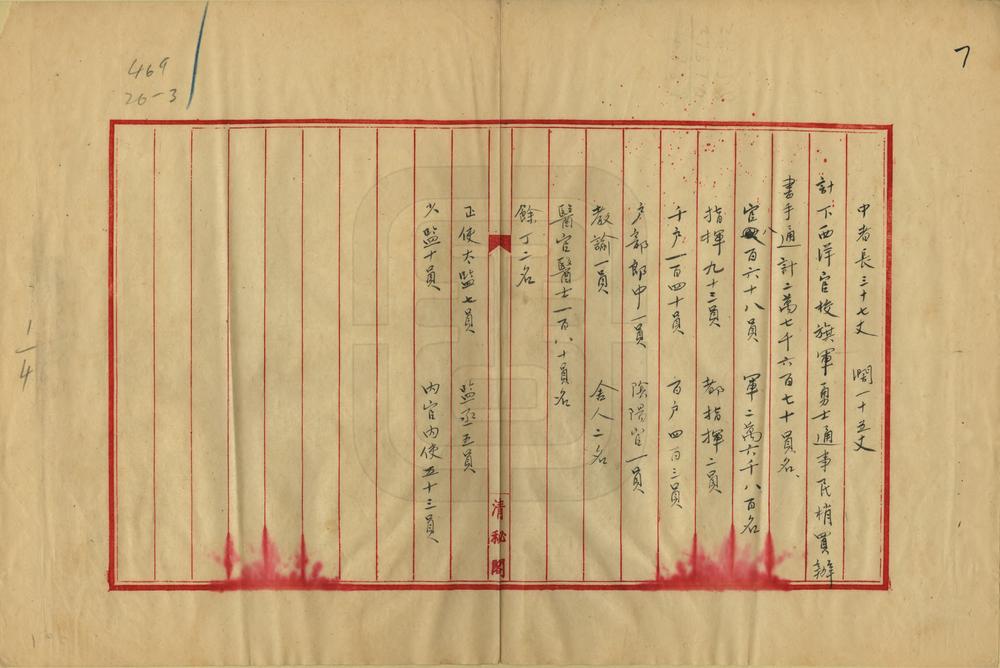 469
26-3
7
中者長三十七丈　闊一十五丈
計下西洋官校旗軍勇士通事民梢買辦
書手通計二萬七千六百七十員名、
官八百六十八員　軍二萬六千八百名
指揮九十三員　都指揮二員
千戶一百四十員　百戶四百三員
戶部郎中一員　陰陽官一員
教諭一員　舍人二名
醫官醫士一百八十員名
餘丁二名
正使太監七員　監丞五員
少監十員　內官內使五十三員
清秘閣
1/4